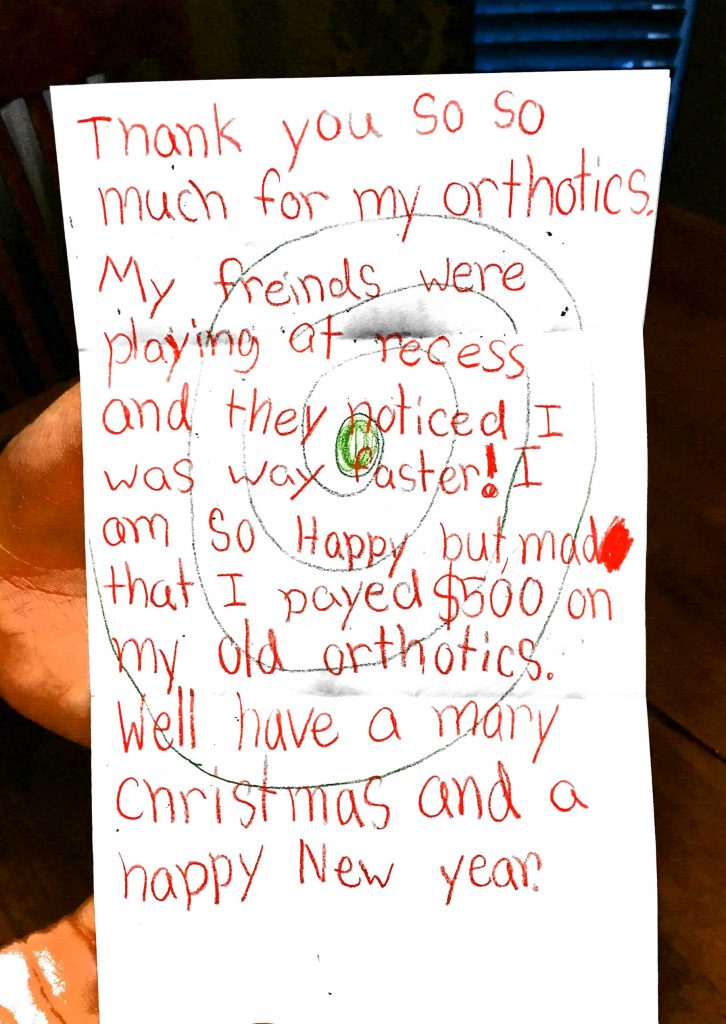 Thank you so so
much for my orthotics.
My freinds were
playing at recess
and they noticed I
was way faster! I
am so Happy but, mad
that I payed $500 on
my old orthotics.
Well have a mary
christmas and a
happy New year.